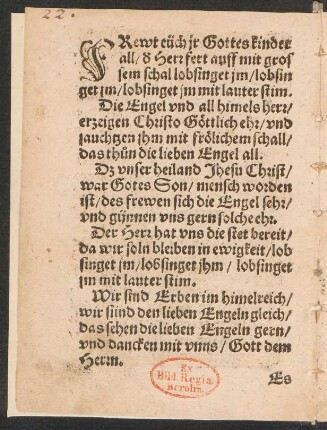 22.
FRewt eüch jr Gottes kinder
all / d Herr fert auff mit gros
sem schal lobsinget jm / lobsin
get jm / lobsinget jm mit lauter stim.
Die Engel vnd all himels herr /
erzeigen Christo Göttlich ehr / vnd
jauchtzen jhm mit frölichem schall /
das thůn die lieben Engel all.
Dz vnser heiland Jhesu Christ /
war Gotes Son / mensch worden
ist / des frewen sich die Engel sehr /
vnd günnen vns gern solche ehr.
Der Herr hat vns die stet bereit /
da wir soln bleiben in ewigkeit / lob
singet jm / lobsinget jhm / lobsinget
jm mit lauter stim.
Wir sind Erben im himelreich /
wir sind den lieben Engeln gleich /
das sehen die lieben Engeln gern /
vnd dancken mit vnns / Gott dem
Herrn.
Es
Ex
Bibl. Regia
Berolin.